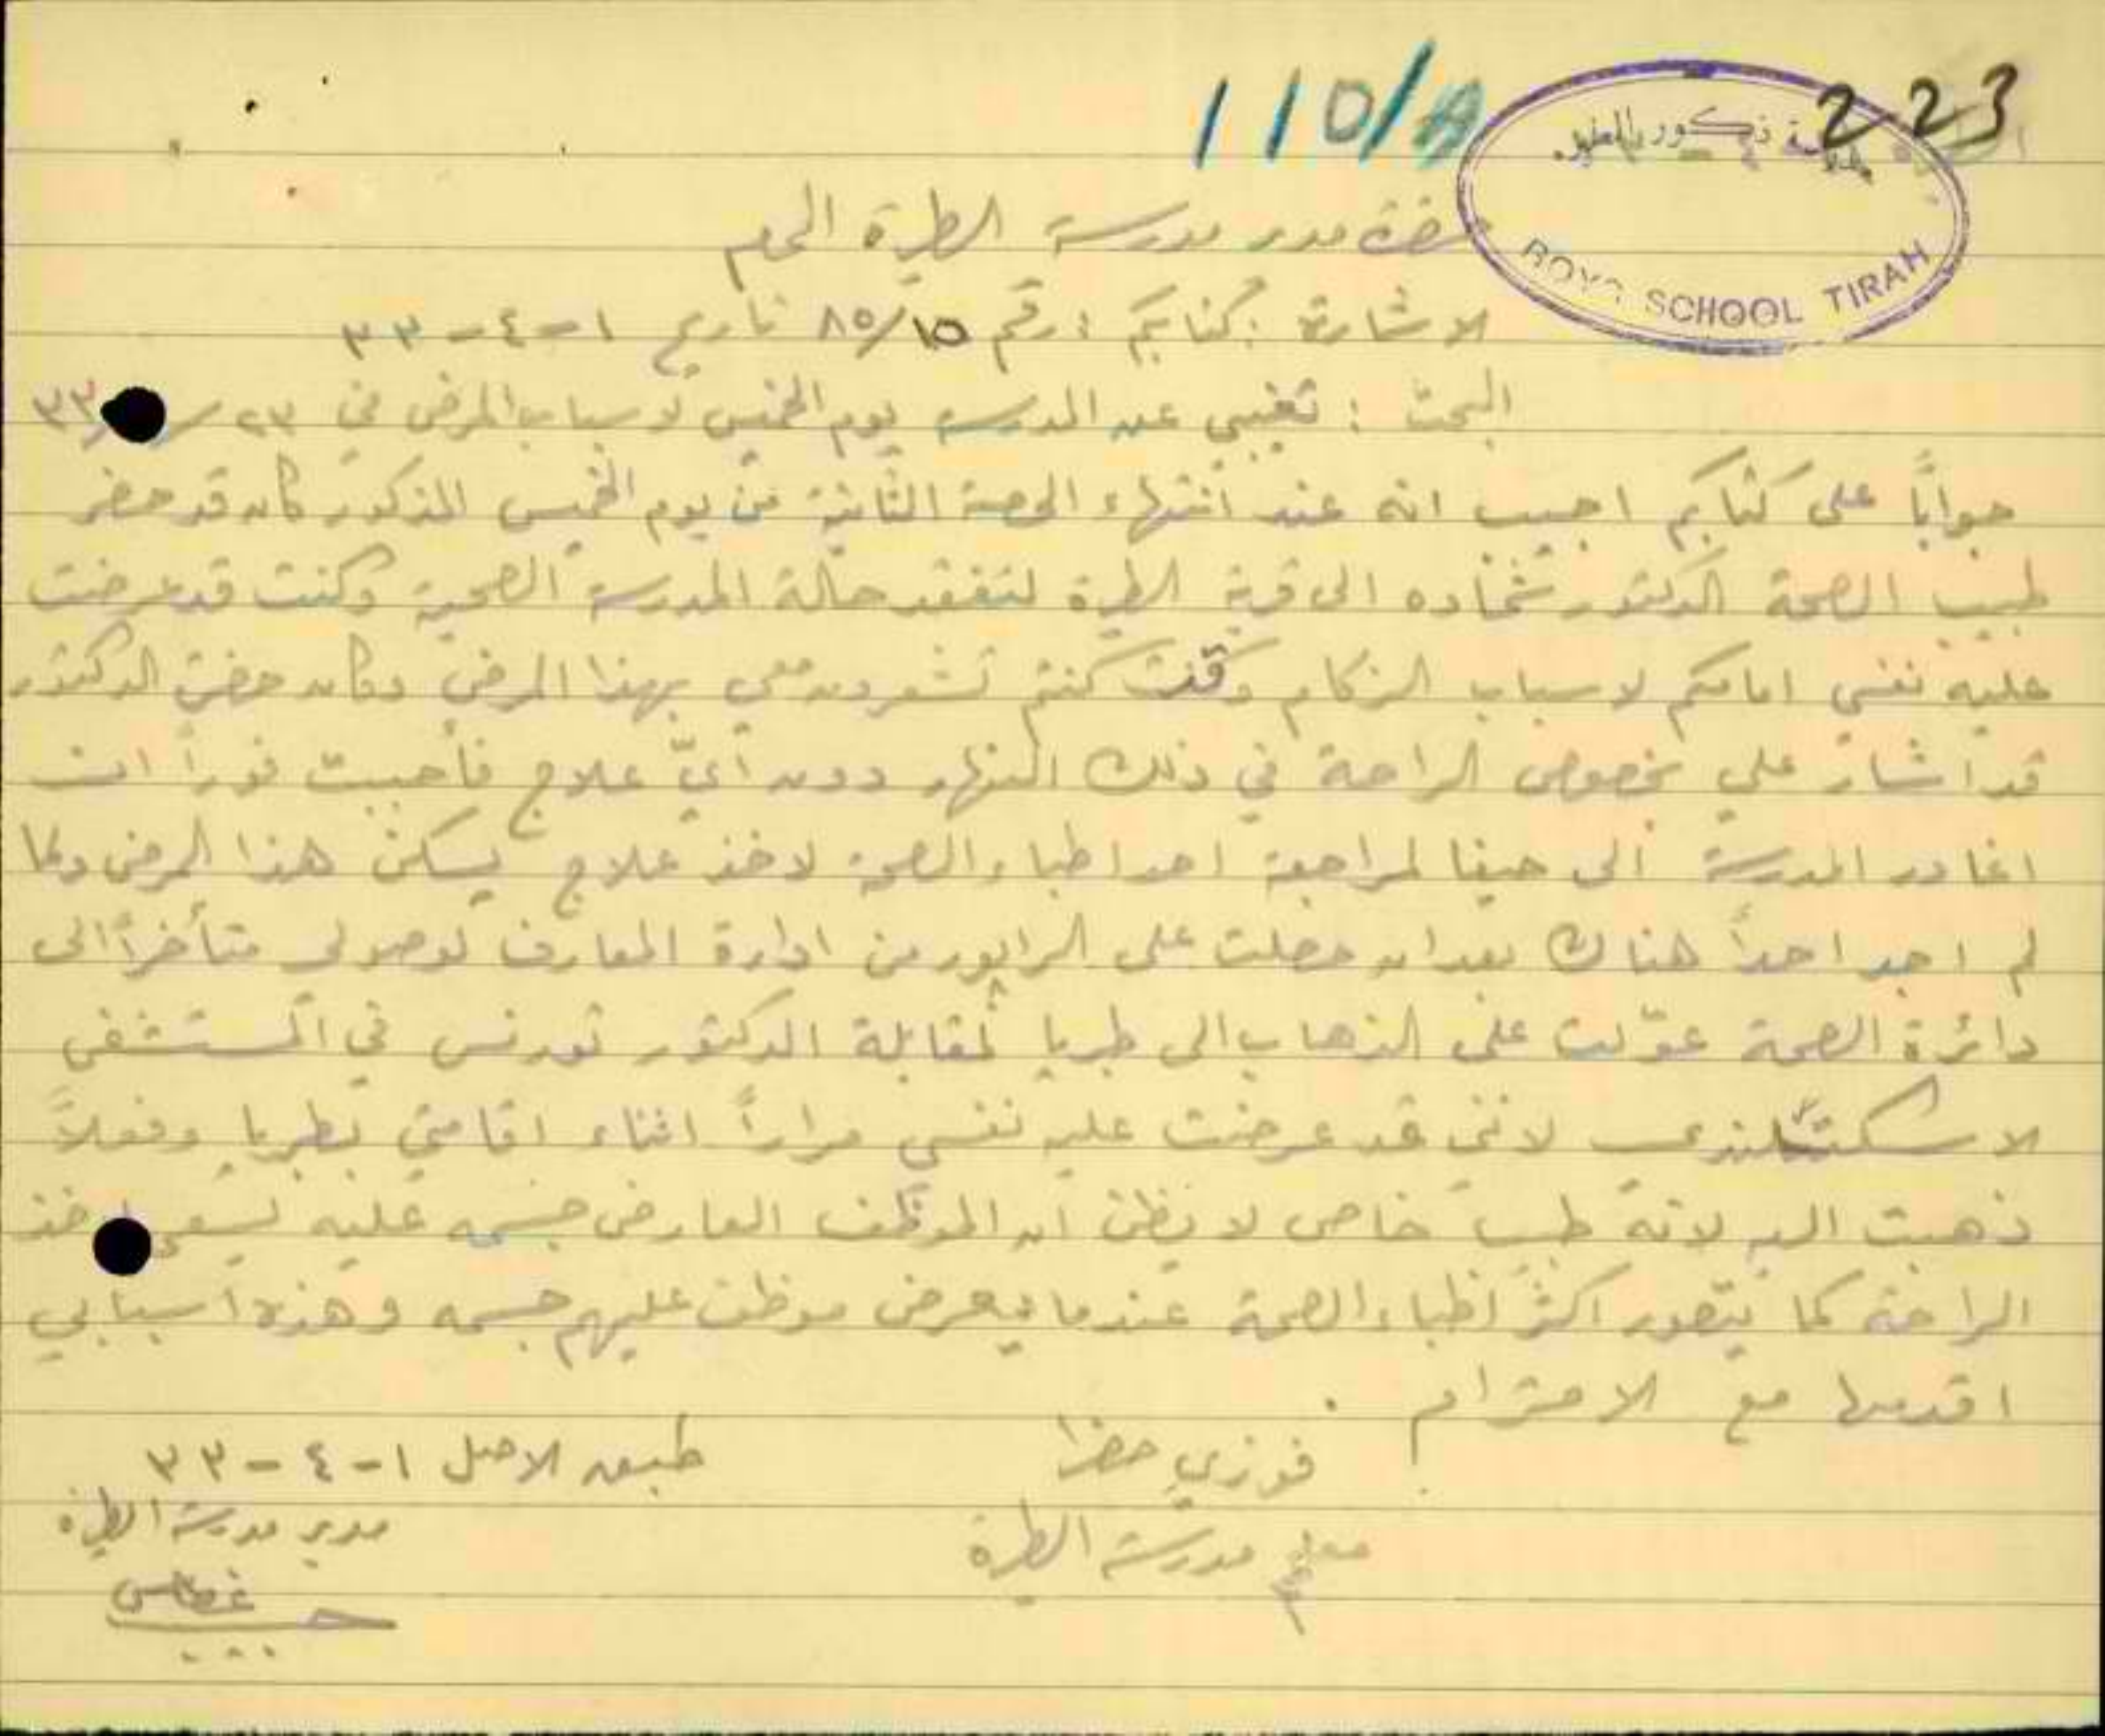 223
110/A
مدرسة ذكور الطيره
BOYS SCHOOL TIRAH
حضرة مدير مدرسة الطيرة المحترم
الاشارة : كتابكم رقم ٨٥/١٥ تاريخ ١-٤-٣٣
البحث : تغيبي عن المدرسة يوم الخميس لاسباب المرض في ٢٣/ /٣٣
جواباً على كتابكم اجيب انه عند انتهاء الحصة الثانية من يوم الخميس المذكور كان قد حضر
طبيب الصحة الدكتور شحاده الى قرية الطيرة لتفقد حالة المدرسة الصحية وكنت قد عرضت
عليه نفسي امامكم لاسباب الزكام وقت كنتم تشعرون معي بهذا المرض وكان حضرة الدكتور
قد اشار علي بخصوص الراحة في ذلك النهار دون أيّ علاج فأحببت فوراً ان
اغادر المدرسة الى حيفا لمراجعة احد اطباء الصحة لاخذ علاج يسكن هذا المرض ولما
لم اجد احداً هناك بعد ان حصلت على الرابور من ادارة المعارف لوصولي متأخراً الى
دائرة الصحة عوّلت على الذهاب الى طبريا لمقابلة الدكتور تورنس في المستشفى
الاسكتلندي لانني قد عرضت عليه نفسي مراراً اثناء اقامتي بطبريا وفعلاً
ذهبت اليه لانه طبيب خاص لا يظن ان الموظف العارض جسمه عليه يسعى لاخذ
الراحة كما يتصور اكثر اطباء الصحة عندما يعرض موظف عليهم جسمه وهذه اسبابي
اقدمها مع الاحترام .
فوزي خضرا
معلم مدرسة الطيرة
طبق الاصل ١-٤-٣٣
مدير مدرسة الطيرة
حبيب غطاس